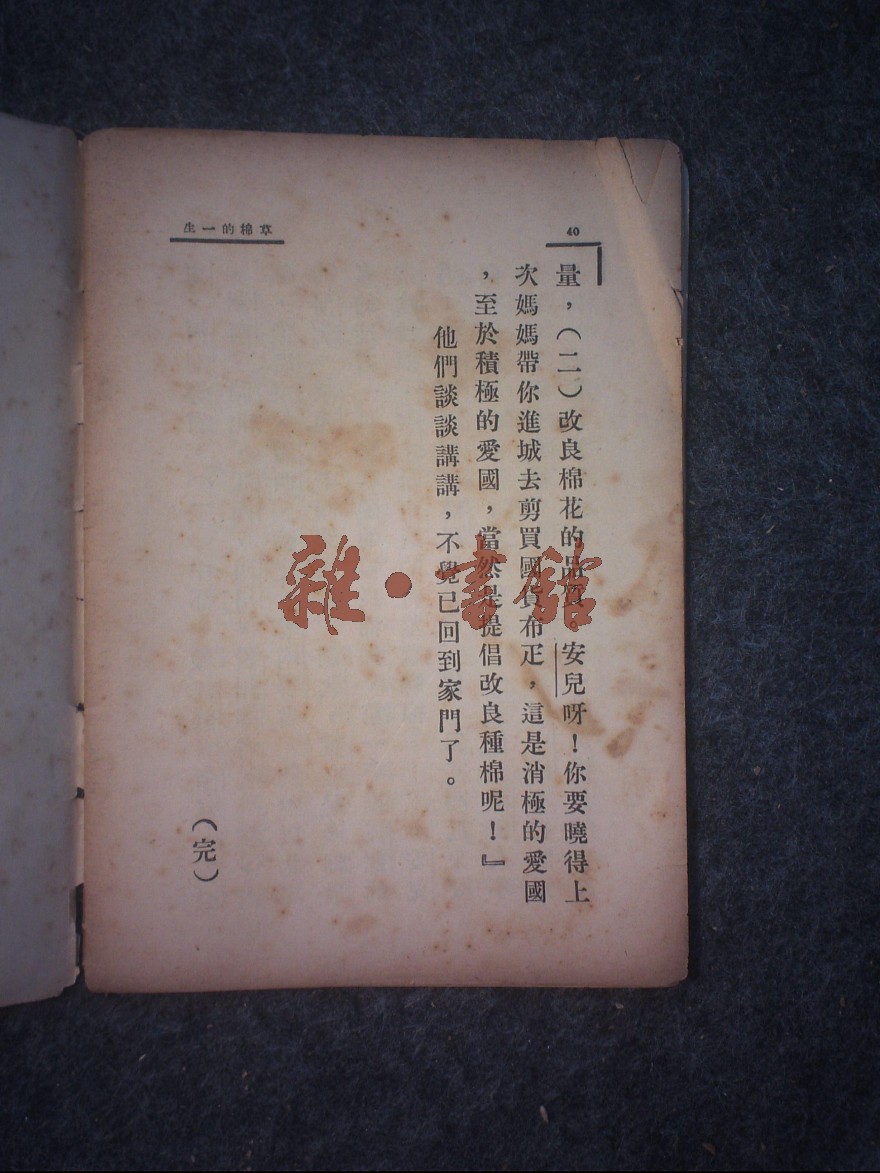 40
草棉的一生
量，（二）改良棉花的品質。安兒呀！你要曉得上
次媽媽帶你進城去剪買國貨布疋，這是消極的愛國
，至於積極的愛國，當然是提倡改良種棉呢！』
他們談談講講，不覺已回到家門了。
（完）
雜·書館